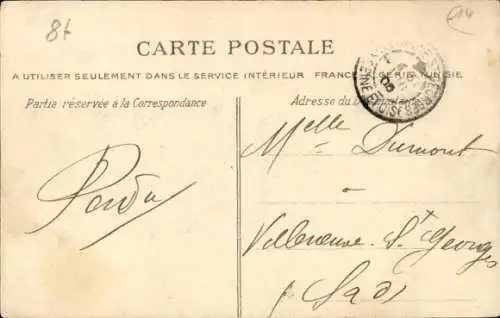 8f
14
CARTE POSTALE
A UTILISER SEULEMENT DANS LE SERVICE INTÉRIEUR FRANCE ALGÉRIE TUNISIE
Partie réservée à la Correspondance
Adresse du
SEINE ET OISE
Melle Dumont
à
Villeneuve-St Georges